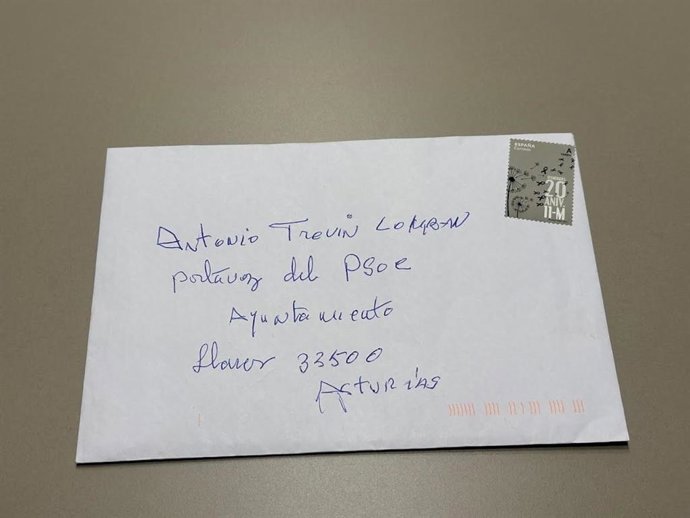 ESPAÑA
A
20
ANIV.
11-M
Antonio Trevin Lomban
portavoz del PSOE
Ayuntamiento
Llanes 33500
Asturias